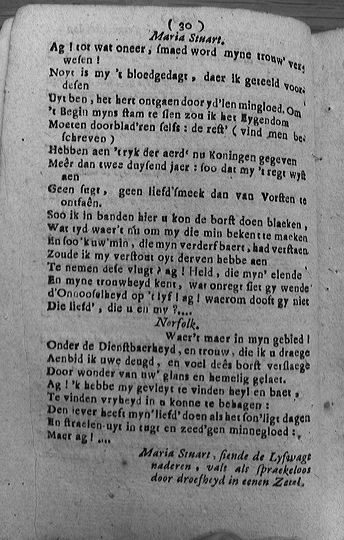 ( 20 )
Maria Stuart.
Ag ! tot wat oneer, smaed word myne trouw' ver-
wesen !
Noyt is my 't bloedgedagt, daer ik geteeld voor-
desen
Uyt ben, het hert ontgaen door yd'len mingloed. Om
't Begin myns stam te sien zou ik het Eygendom
Moeten doorblad'ren selfs : de rest' ( vind men be-
schreven )
Hebben aen 'tryk der aerd' nu Koningen gegeven
Meêr dan twee duysend jaer : soo dat my 't regt wyst
aen
Geen sugt, geen liefd'smeek dan van Vorsten te
ontfaên.
Soo ik in banden hier u kon de borst doen blaeken,
Wat tyd waer't nu om my die min bekent te maeken
En soo'k uw'min, die myn verderf baert, had verstaen
Zoude ik my verstout oyt derven hebbe aen
Te nemen dese vlugt ? ag ! Held, die myn' elende
En myne trouwheyd kent, wat onregt siet gy wende
d'Onnooselheyd op 't lyf ! ag ! waerom doost gy niet
Die liefd', die u en my ?....
Norfolk.
Waer't maer in myn gebied !
Onder de Dienstbaerheyd, en trouw, die ik u draege
Aenbid ik uwe deugd, en voel deês borst verslaege
Door wonder van uw' glans en hemelig gelaet.
Ag ! 'k hebbe my gevleyt te vinden heyl en baet,
Te vinden vryheyd in u konne te behagen :
Den iever heeft myn'liefd' doen als het son'ligt dagen
En straelen uyt in tugt en zeed'gen minnegloed :
Maer ag ! ....
Maria Stuart, siende de Lyfwagt
naderen, valt als spraekeloos
door droefheyd in eenen Zetel.